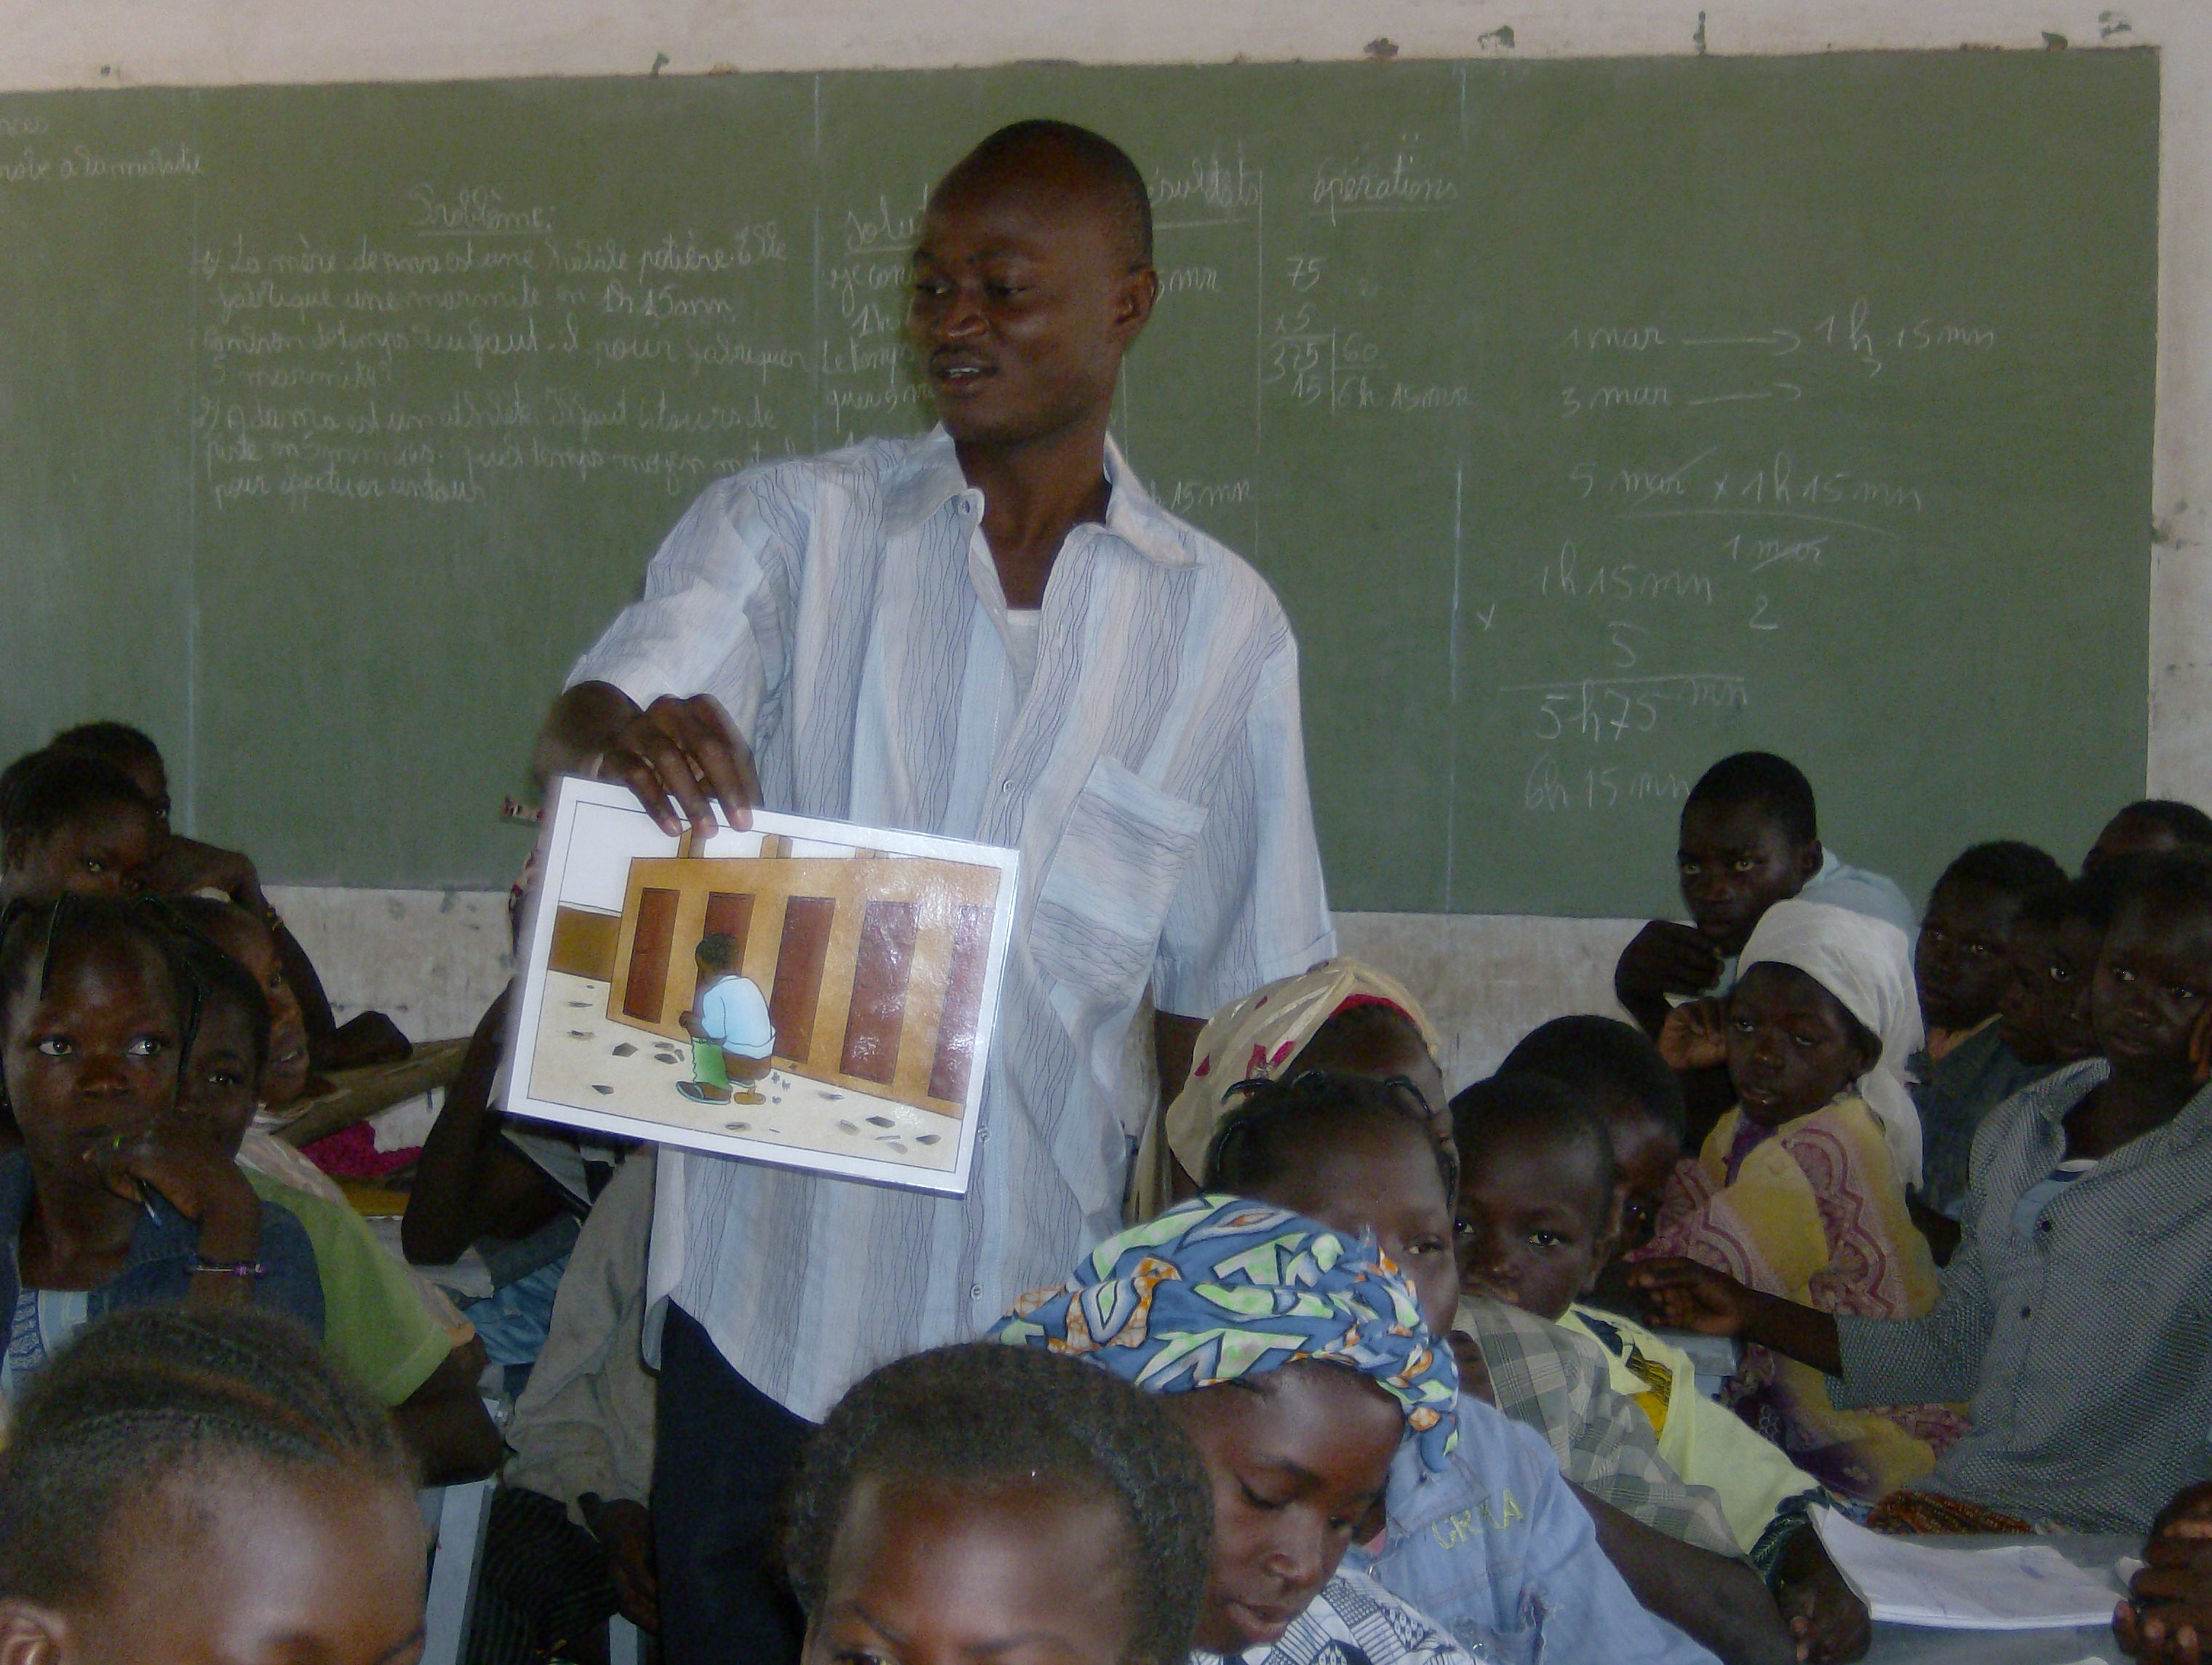 a la maladie
Problème:
1) La mère de Awa est une habile potière. Elle
fabrique une marmite en 1h 15mn.
temps faut-il pour fabriquer
5 marmites?
2) Adama est un athlète. Il faut tours de
piste en quel temps moyen met-il
pour effectuer un tour
Solu
je con
1h
Le temps
quer 5 m
résultats
5mn
h 15mn
opérations
75
x5
375 60
15 6h 15mn
1 mar → 1h 15mn
3 mar →
5 mar x 1h 15mn
1 mar
1h 15mn
x 5 2
5h75mn
6h 15mn